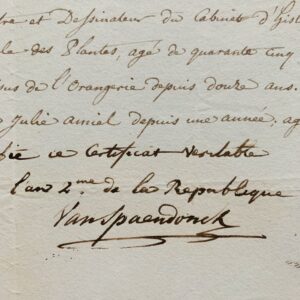 tre et Dessinateur du Cabinet d'Hist
le des Plantes, agé de quarante cinq
sus de l'Orangerie depuis douze ans.
Julie amiel depuis une année, ag
fie ce Certificat veritable
l'an 2.me de la Republique
Van Spaendonck